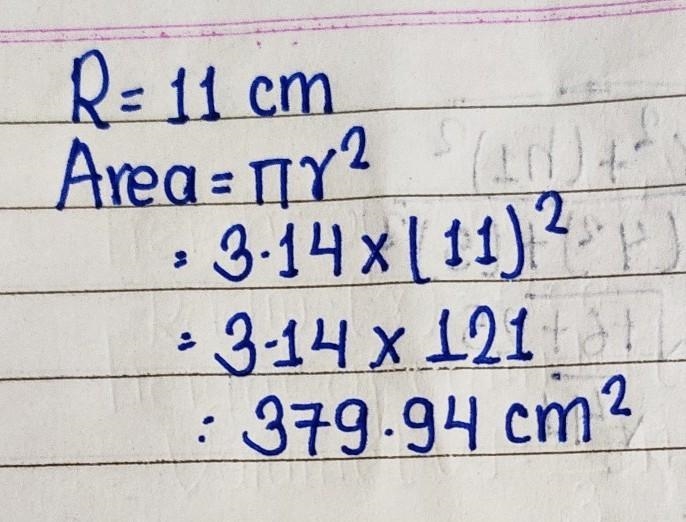 R = 11 cm
Area = πr²
= 3.14 x (11)²
= 3.14 x 121
: 379.94 cm²